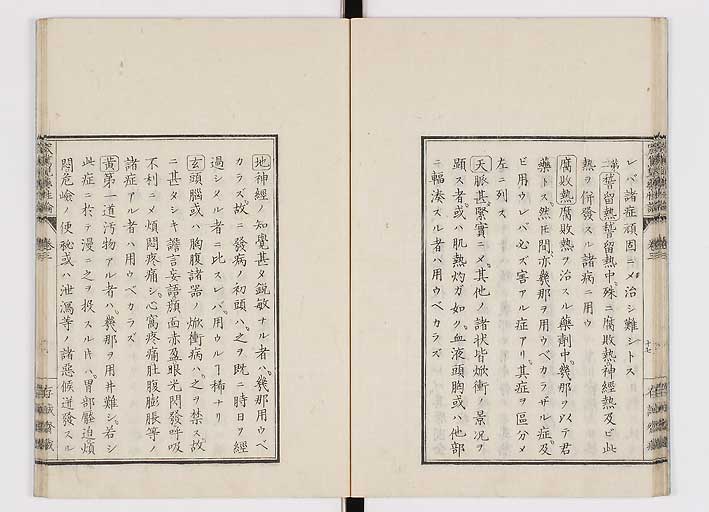 レバ諸症頑固ニメ治シ難シトス
第二稽留熱稽留熱中。殊ニ腐敗熱神経熱及ビ此
熱ヲ併發スル諸病ニ用ウ
腐敗熱腐敗熱ヲ治スル藥劑中。幾那ヲ以テ君
藥トス。然𪜈間亦幾那ヲ用ウベカラザル症。及
ビ用ウレバ必ズ害アル症アリ。其症ヲ區分メ
左ニ列ス
天脈甚緊實ニメ。其他ノ諸状皆焮衝ノ景况ヲ
顕ス者。或ハ肌熱灼ガ如ク。血液頭胸或ハ他部
ニ輻湊スル者ハ用ウベカラズ
十七
地神經ノ知覺甚タ鋭敏ナル者ハ。幾那用ウベ
カラズ。故ニ發病ノ初頭ハ。之ヲ既ニ時日ヲ經
過シメル者ニ比スレバ。用ウルヿ稀ナリ
玄頭腦或ハ胸腹諸器ノ焮衝病ハ。之ヲ禁ス。故
ニ甚タシキ譫言妄語。顔面赤盈眼光閃發呼吸
不利ニメ煩悶疼痛シ。心窩疼痛肚腹膨脹等ノ
諸症アル者ハ用ウベカラズ
黄第一道汚物アル者ハ。幾那ヲ用井難シ。若シ
此症ニ於テ漫ニ之ヲ投スル𪜈ハ。胃部壓迫煩
悶危嶮ノ便秘或ハ泄瀉等ノ諸惡候迸發スル